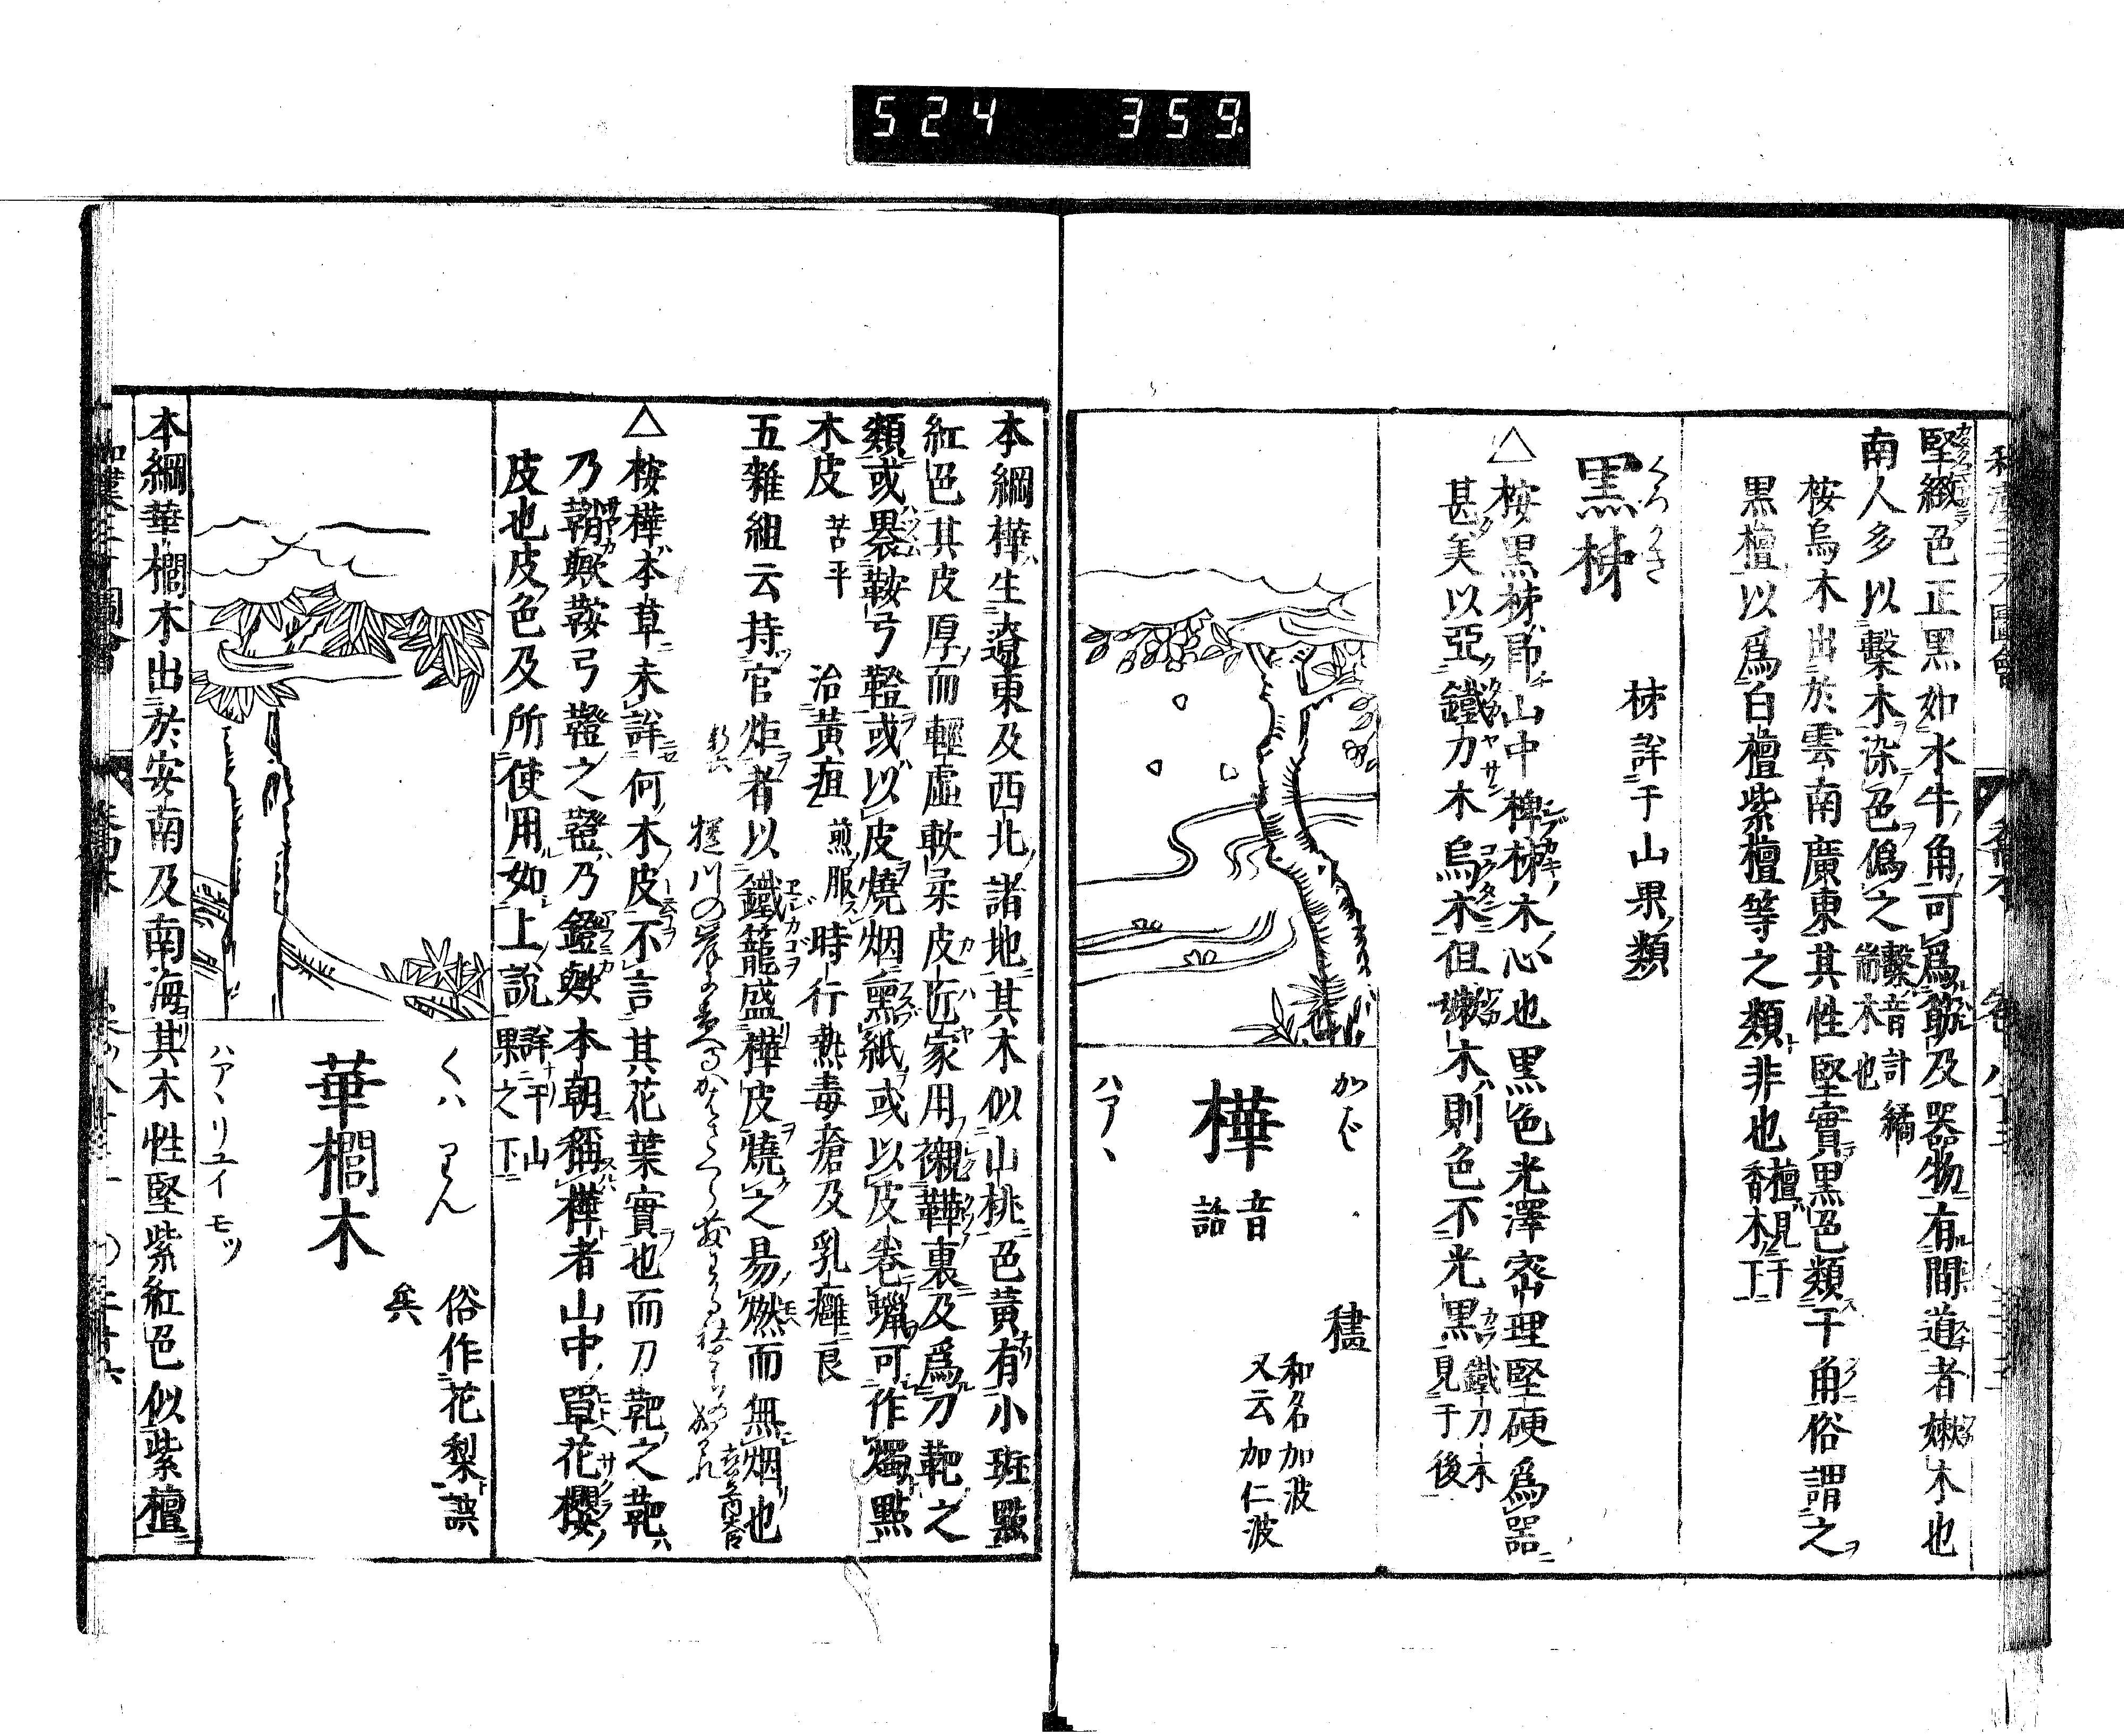 524 359
堅緻色正黒如水牛角可爲筯及器物有間道者嫩木也
南人多以檕木染色僞之 檕音計 耑木也
桉烏木出於雲南廣東其性堅實黒色類于角俗謂之
黒檀以爲白檀紫檀等之類非也 檀見于 香木下
くろがき
黒柹 柹詳于山果類
△桉黒柹卽山中椑柹木心也黒色光澤宻理堅硬爲器
甚美以亞鐵力木烏木但嫩木則色不光黒 鐵刀木 見于後
かば
樺 音話
ハアヽ
和名加波
又云加仁波
本綱樺生遼東及西北諸地其木似山桃色黄有小斑㸃
紅色其皮厚而輕虚軟柔皮匠家用襯鞾裏及爲刀靶之
類或褁鞍弓鞾或以皮燒烟熏紙或以皮卷蠟可作燭㸃
木皮 苦平 治黄疸煎服時行熱毒瘡及乳癰良
五雜組云持官炬者以鐵籠盛樺皮燒之易燃而無烟也
△桉樺本草未詳何木皮不言其花葉實也而刀靶之靶
乃鞘歟鞍弓鞾之鞾乃鐙歟本朝稱樺者山中單花櫻
皮也皮色及所使用如上説 詳于山 果之下
くはりん
華櫚木
ハアヽリユイモッ
俗作花梨誤
矣
本綱華櫚木出於安南及南海其木性堅紫紅色似紫檀